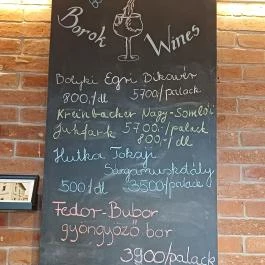 Borok
Wines
Bolyki Egri Bikavér
800./dl 5700/palack
Kreinbacher Nagy-Somlói
Juhfark 5700.-/palack
800.-/dl
Hutka Tokaji
Sárgamuskdály
500/dl 3500/palack
Fedor-Bubor
gyöngyöző bor
3900/palack